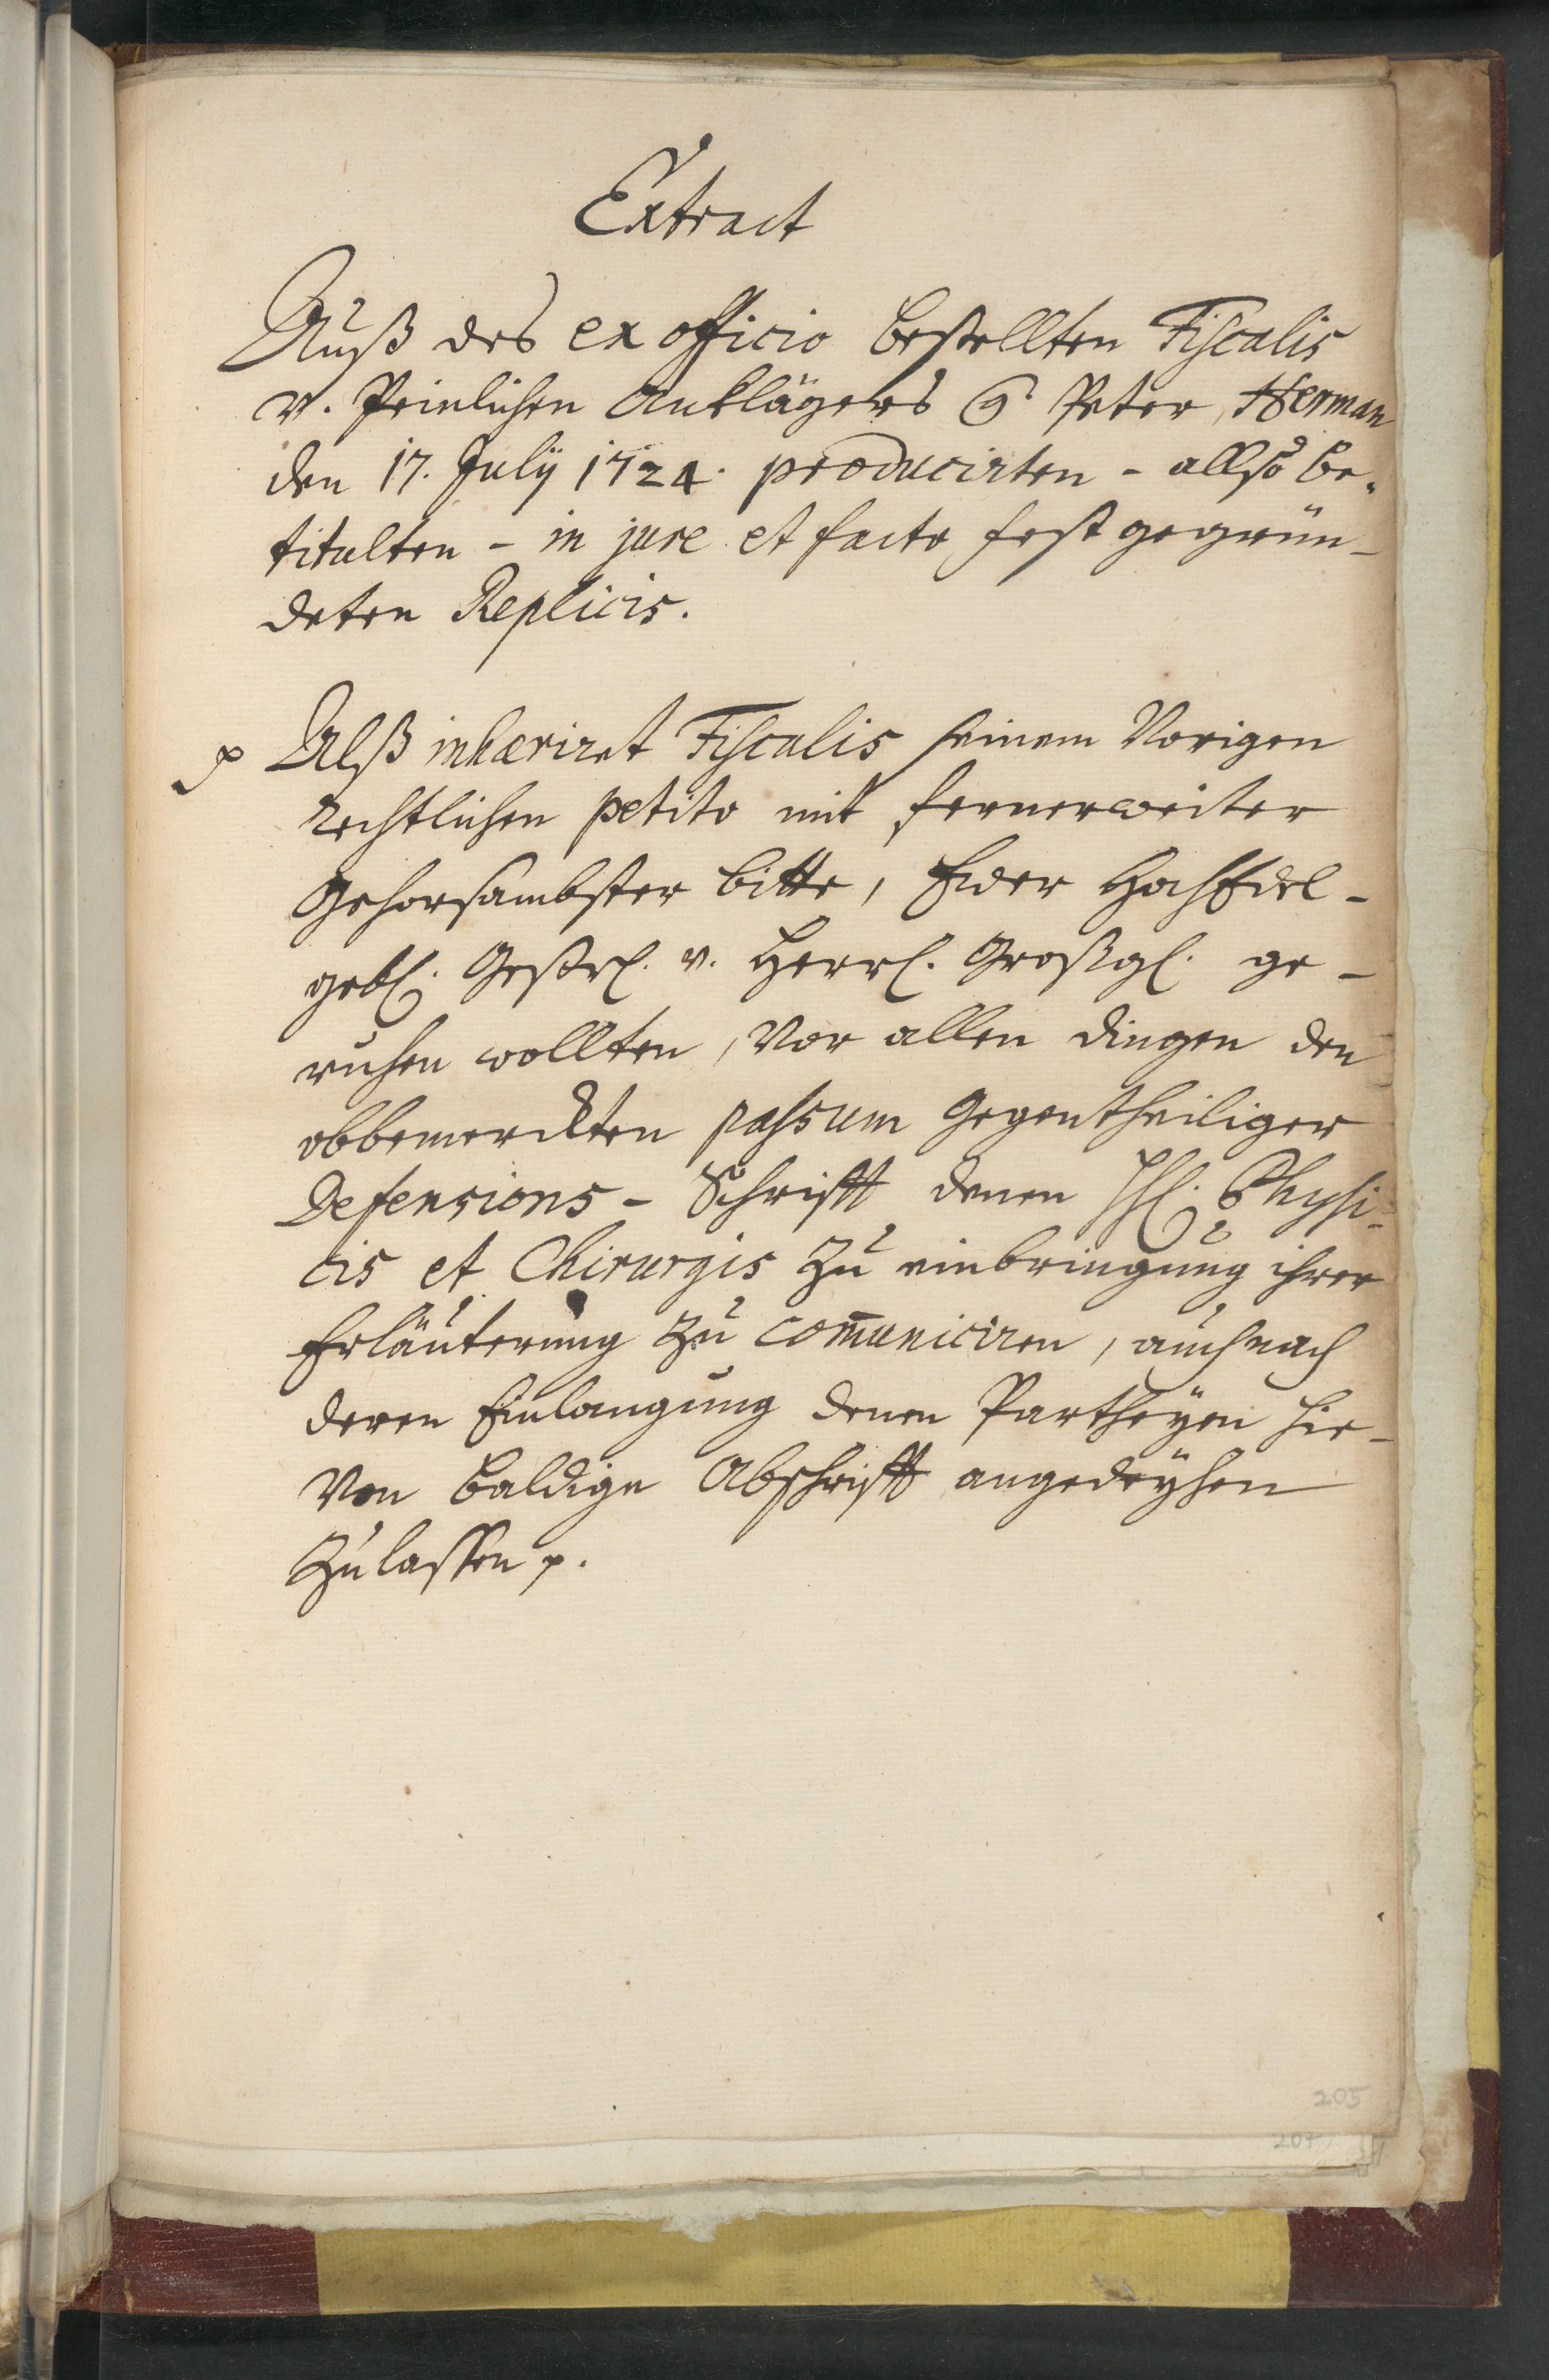 Extract
Auß des ex officio bestellten Fiscalis
v. Peinlichen Anklägers H. Peter Herman
den 17. July 1724. producirten - allso be-
titulten - in jure et facto fest gegrün-
deten Replicis.
p Alß inhæriret Fiscalis seinem Vorigen
rechtlichen petito mit fernerweiter
Gehorsambster bitte, Ewer HochEdel-
gebl. Gestrl. v. Herrl. Großgl. ge-
ruhen wollten, Vor allen dingen den
obbemerckten passum Gegentheiliger
Defensions- Schrifft denen HH. Physi-
cis et Chirurgis zu einbringung ihrer
Erläuterung zu com̄uniciren, auch nach
deren Einlangung denen Partheyen hie-
Von baldige Abschrifft angedeyhen
zu lassen p.
205
207